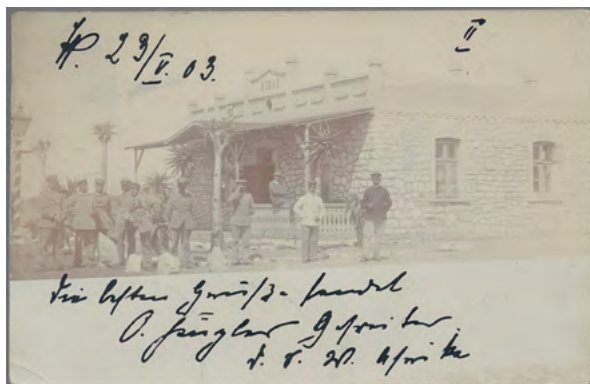 23/V. 03.
II
Die besten Grüße sendet
O. Gefreiter
D. S. W. Afrika